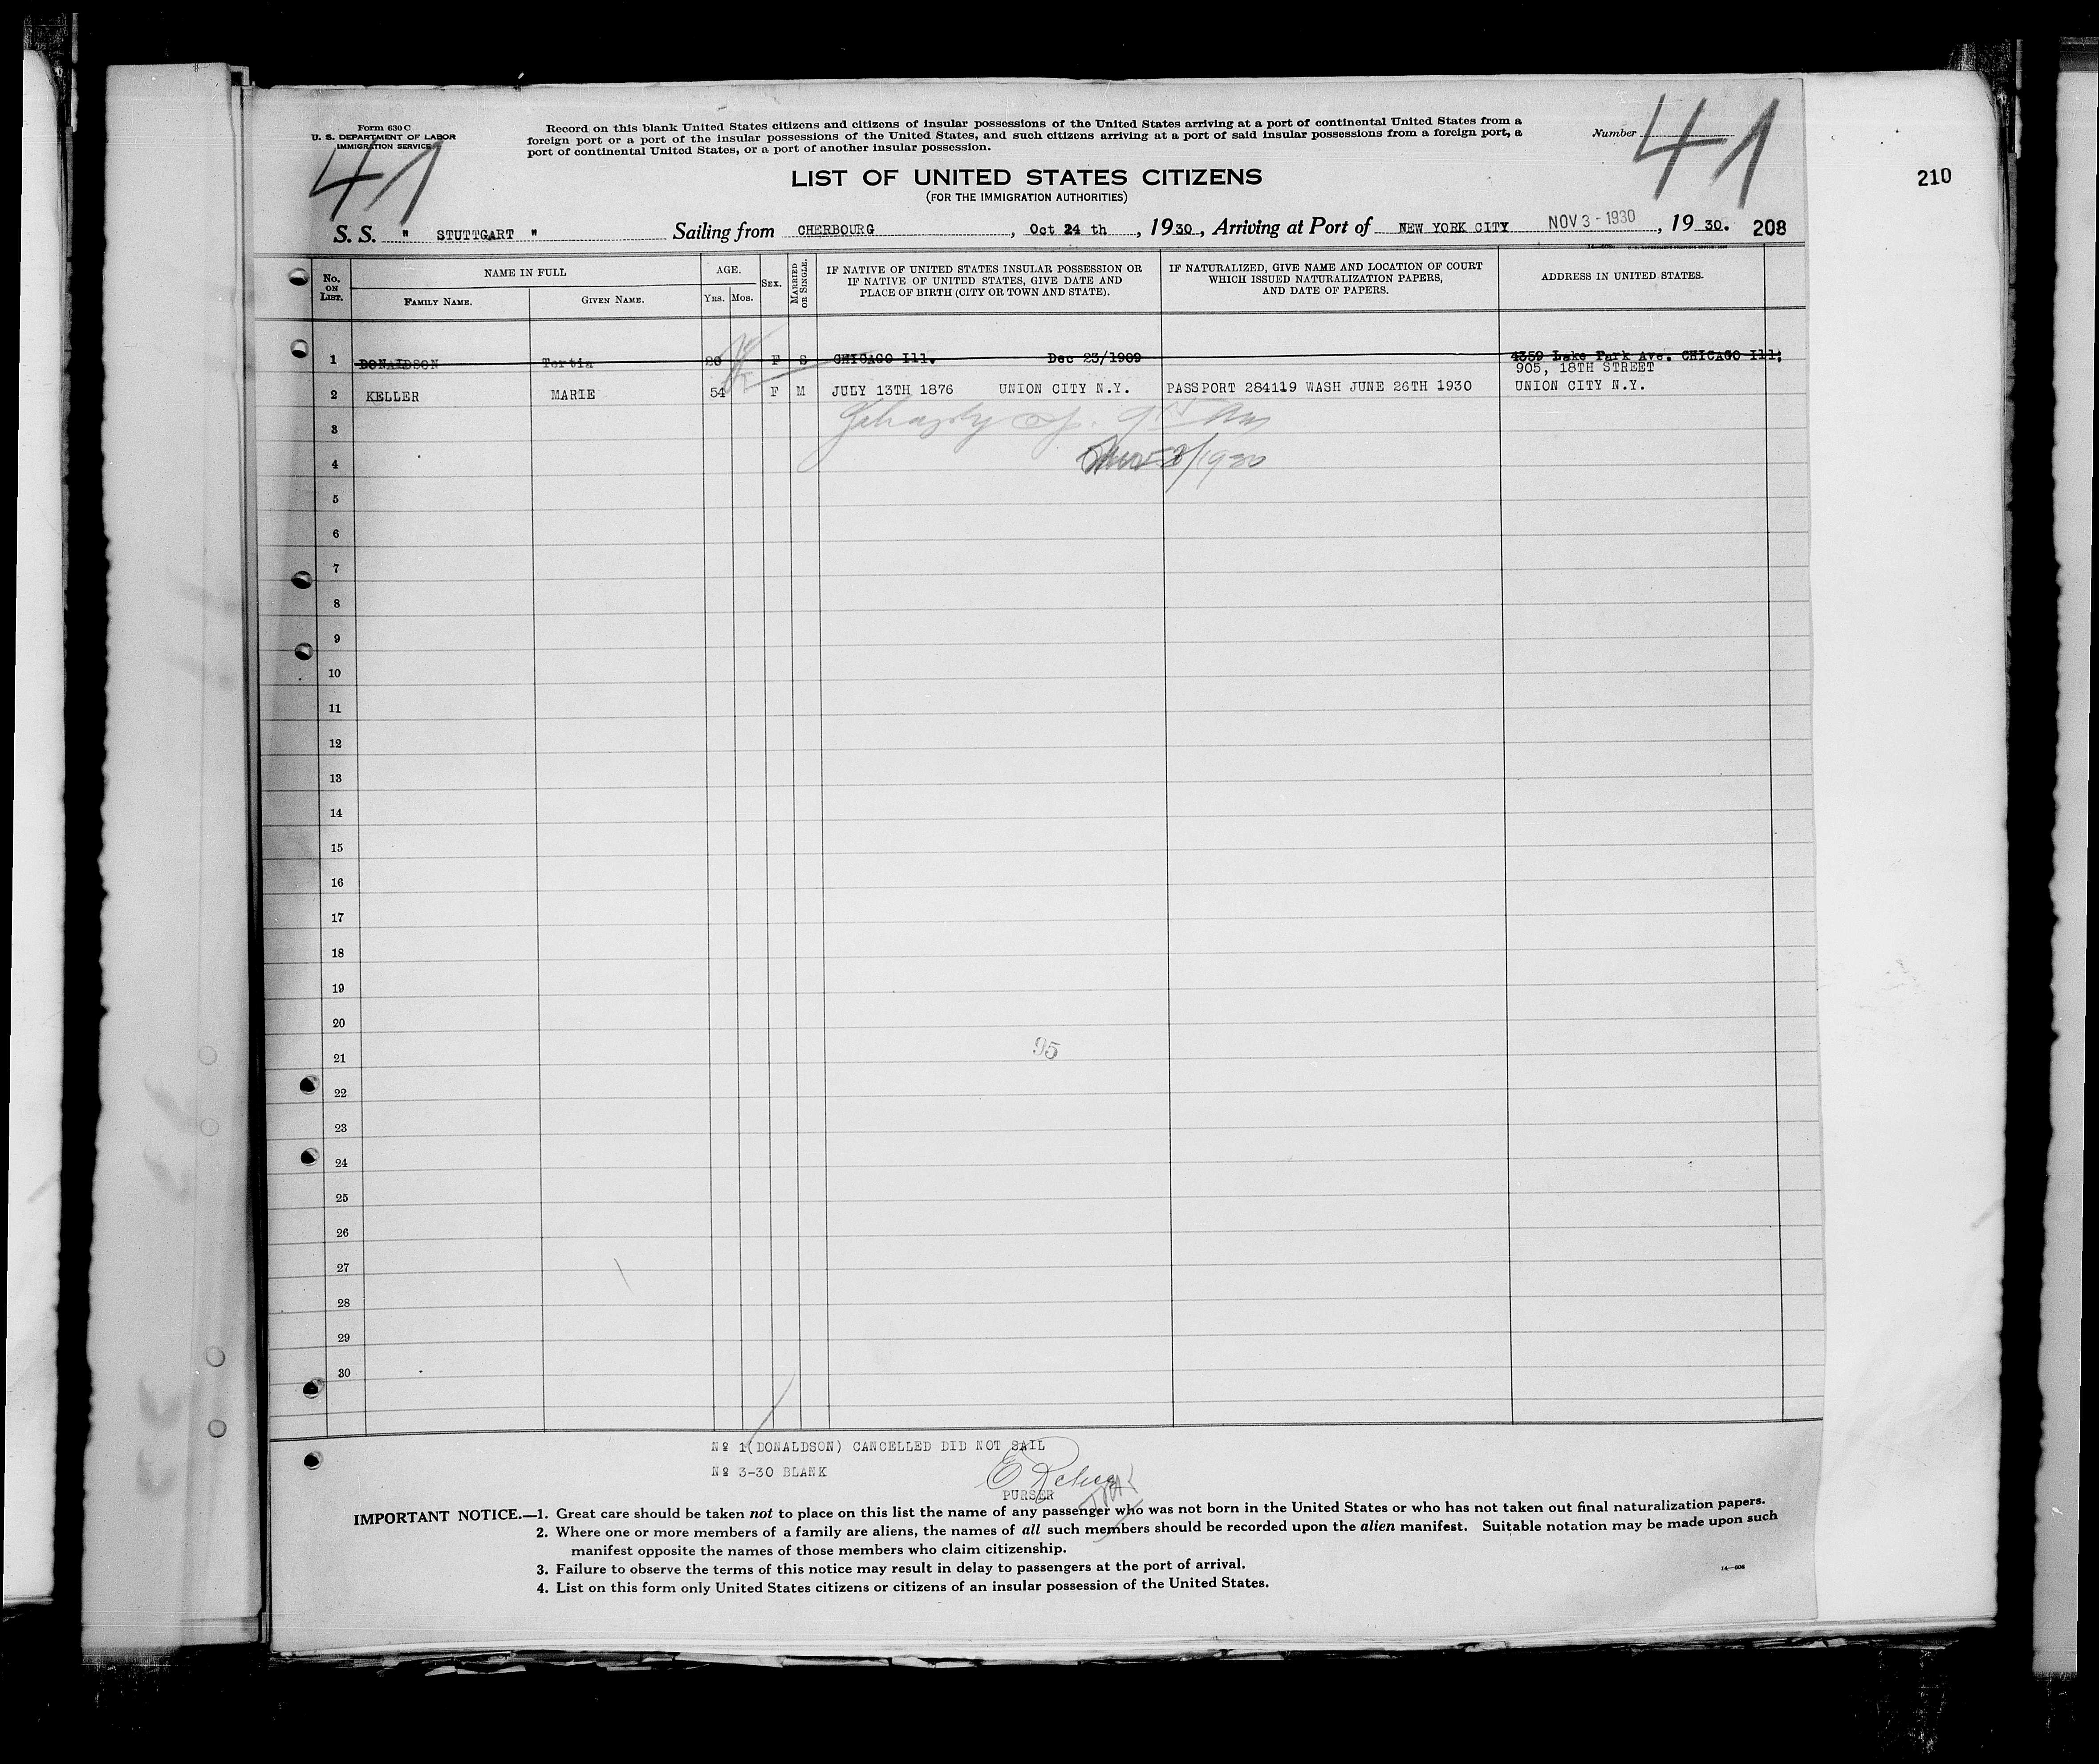 Form 630 C
U. S. DEPARTMENT OF LABOR
IMMIGRATION SERVICE
41
Record on this blank United States citizens and citizens of insular possessions of the United States arriving at a port of continental United States from a
foreign port or a port of the insular possessions of the United States, and such citizens arriving at a port of said insular possessions from a foreign port, a
port of continental United States, or a port of another insular possession.
Number
41
210
LIST OF UNITED STATES CITIZENS
(FOR THE IMMIGRATION AUTHORITIES)
S. S. " STUTTGART " Sailing from CHERBOURG, Oct 24 th, 1930, Arriving at Port of NEW YORK CITY NOV 3 - 1930, 19 30. 208
No. ON LIST.
NAME IN FULL
FAMILY NAME. GIVEN NAME.
AGE.
YRS. MOS.
SEX.
MARRIED OR SINGLE.
IF NATIVE OF UNITED STATES INSULAR POSSESSION OR
IF NATIVE OF UNITED STATES, GIVE DATE AND
PLACE OF BIRTH (CITY OR TOWN AND STATE).
IF NATURALIZED, GIVE NAME AND LOCATION OF COURT
WHICH ISSUED NATURALIZATION PAPERS,
AND DATE OF PAPERS.
ADDRESS IN UNITED STATES.
1 DONALDSON Tertia 20 F S CHICAGO Ill. Dec 23/1909 4359 Lake Park Ave. CHICAGO Ill;
905, 18TH STREET
2 KELLER MARIE 54 F M JULY 13TH 1876 UNION CITY N.Y. PASSPORT 284119 WASH JUNE 26TH 1930 UNION CITY N.Y.
3
4 /1930
5
6
7
8
9
10
11
12
13
14
15
16
17
18
19
20
21 95
22
23
24
25
26
27
28
29
30
Nº 1(DONALDSON) CANCELLED DID NOT SAIL
Nº 3-30 BLANK
PURSER
IMPORTANT NOTICE.—1. Great care should be taken not to place on this list the name of any passenger who was not born in the United States or who has not taken out final naturalization papers.
2. Where one or more members of a family are aliens, the names of all such members should be recorded upon the alien manifest. Suitable notation may be made upon such
manifest opposite the names of those members who claim citizenship.
3. Failure to observe the terms of this notice may result in delay to passengers at the port of arrival.
4. List on this form only United States citizens or citizens of an insular possession of the United States.